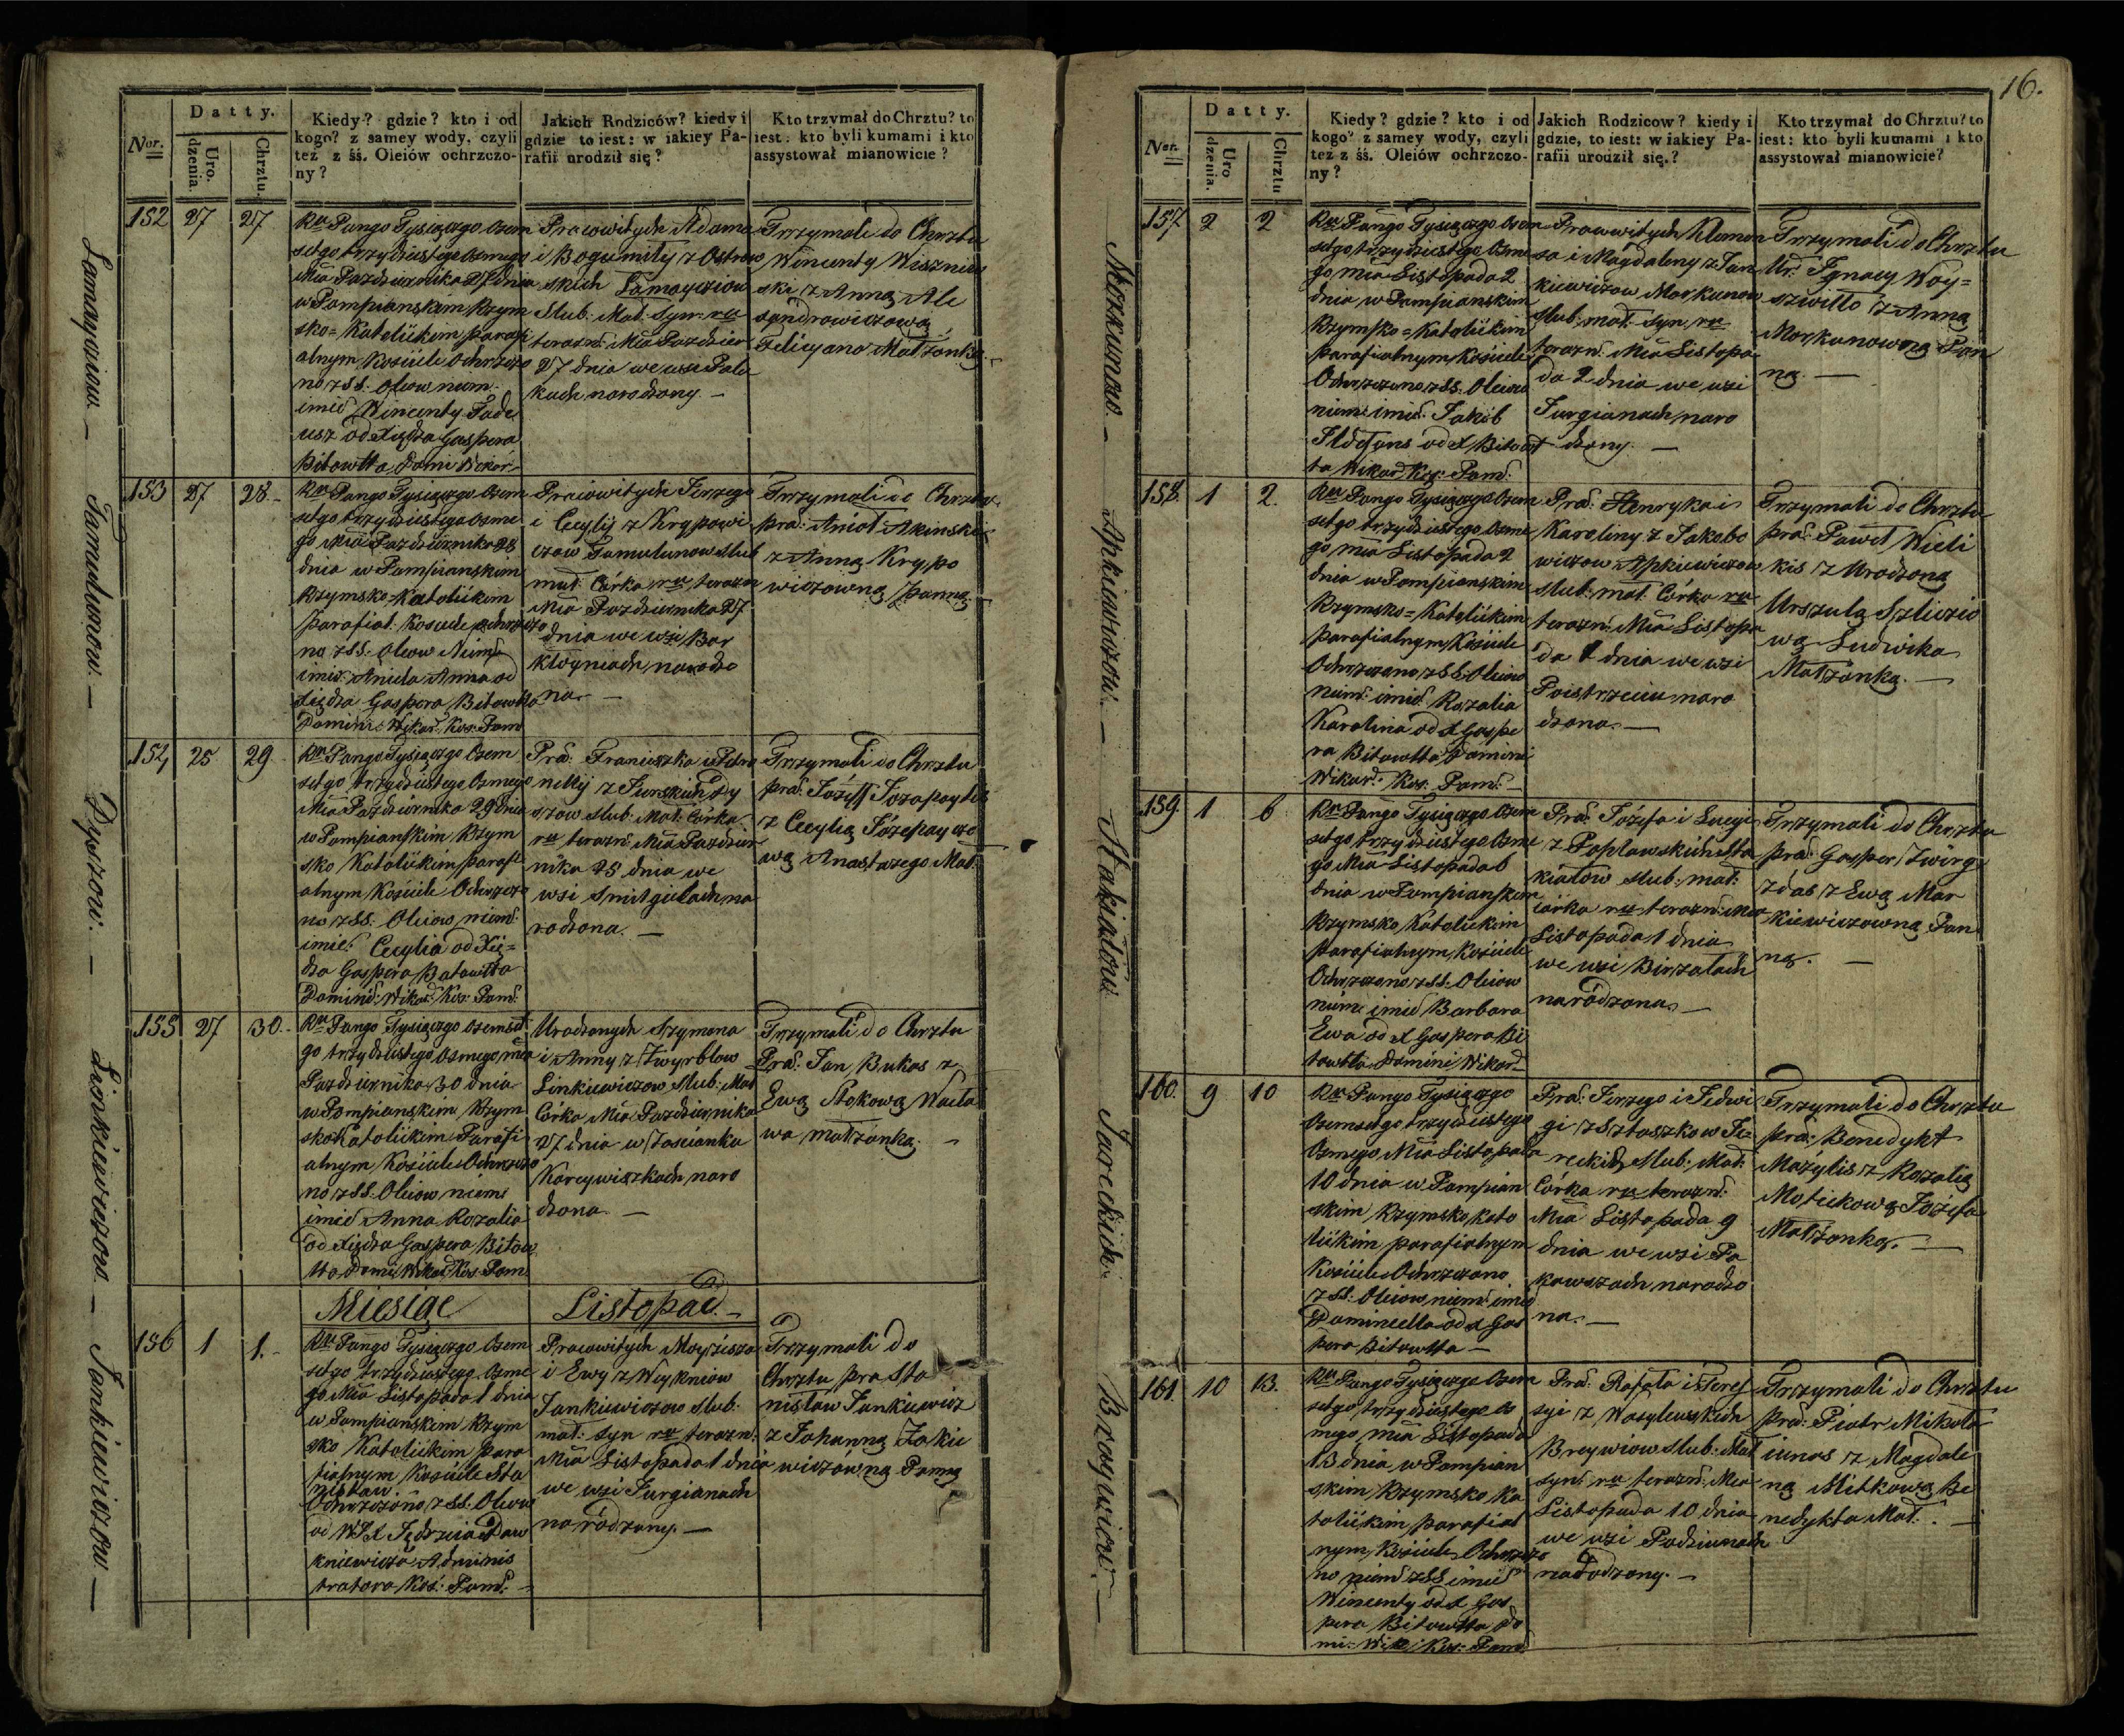 Nor.
Datty.
Uro.
dzenia.
Chrztu.
Kiedy? gdzie? kto i od
kogo? z samey wody, czyli
też z śś. Oleiów ochrzczo-
ny?
Jakich Rodziców? kiedy i
gdzie to iest: w iakiey Pa-
rafii urodził się?
Kto trzymał do Chrztu? to
iest: kto byli kumami i kto
assystował mianowicie?
Łamayziow. —
152 27 27
Ru Pango Tysiączgo Osem
setgo trzydziestego Osmego
Mca Pazdziernika 27 dnia
w Pompianskim Rzym
sko=Katolickim parafi
alnym Kosciele Ochrzczo
no z SS. Oleiow niem:
imie Wincenty Tade
usz od Xiędza Gaspera
Bitowtta Domi Wikar.
Prawowitych Adama
i Bogumiły z Ostrow
skich Łamayziow
Slub: Mał: Syn: ru
terazn: Mca Pazdzier
27 dnia we wsi Pala
kach narodzony. —
Trzymali do Chrztu
Wincenty Wisznies
ski z Anną Ale
xandrowiczową
Felicyana Małżonką.
Tamulunow. —
153 27 28. -
Ru Pango Tysiączgo Osem
setgo trzydziestego Osme
go Mca Pazdziernika 28
dnia w Pompianskim
Rzymsko=Katolickim
Parafial: Kosciele ochrzczo
no z SS. Oleow Niem:
imie: Aniela Anna od
Xiędza Gaspera Bitowtta
Domini: Wikar. Kos: Pom:
Prawowitych Jerzego
i Cecylij z Krypowi
czow Tamulunow Slub
mał: Córka ru terazn
Mca Pazdziernika 27
dnia we wsi Bar
kłoyniach narodzo
na. —
Trzymali do Chrztu
pra: Anioł Akinski
z Anną Krypo
wiczowną Panną.
Dyszow. —
154 25 29
Ru Pango Tysiączgo Osem
setgo trzydziestego Osmego
Mca Pazdziernika 29 dnia
w Pompianskim Rzym
sko Katolickim parafi
alnym Kosciele Ochrzczo
no z SS. Oleiow niem:
imie: Cecylia od Xię=
dza Gaspera Bitowtta
Domini: Wikar: Kos: Pom:
Pra: Franciszka i Petro
nelij z Jurskich Dy
szow slub: Mał: Córka
ru terazn: Mca Pazdzier
nika 25 dnia we
wsi Smilgielach na
rodzona. —
Trzymali do Chrztu
pra: Jozeff Jozapaytis
z Cecylią Jozepaycio
wą Anastazego Mał:
Linkiewiczow. —
155 27 30. -
Ru Pango Tysiączgo Osemset
go trzydziestego Osmego mca
Pazdziernika 30 dnia
w Pompianskim Rzym
sko Katolickim Parafi
alnym Kosciele Ochrzczo
no z SS. Oleiow niem:
imie Anna Rozalia
od Xiędza Gaspera Bitow
tta Domi: Wikar: Kos: Pom:
Urodzonych Szymona
i Anny z Zwyrblow
Linkiewiczow Slub: Mał
Córka Mca Pazdziernika
27 dnia w Zascianku
Karcywiszkach naro
dzona. —
Trzymali do Chrztu
Pra: Jan Bukas z
Ewą Stokową Wacła
wa małżonką. —
Miesiąc Listopad. —
Jankiewiczow —
156 1 1. -
Ru Pango Tysiączgo Osem
setgo trzydziestego Osme
go Mca Listopada 1 dnia
w Pompianskim Rzym
sko Katolickim para
fialnym Kosciele Sta
nisław.
Ochrzczono z SS. Oleiow
od WJX Jędrzeia Daw
kniewicza Adminis
tratora Kos: Pom: —
Prawowitych Moyżesza
i Ewy z Weykniow
Jankiewiczow slub.
mał: Syn ru terazn:
Mca Listopada 1 dnia
we wsi Jurgianach
narodzony. —
Trzymali do
Chrztu pra Sta
nisław Jankiewicz
z Johanną Zakie
wiczowną Panną
16.
Nor.
Datty.
Uro
dzenia.
Chrztu
Kiedy? gdzie? kto i od
kogo? z samey wody, czyli
też z śś. Oleiów ochrzczo-
ny?
Jakich Rodzicow? kiedy i
gdzie, to iest: w iakiey Pa-
rafii urodził się.?
Kto trzymał do Chrztu? to
iest: kto byli kumami i kto
assystował mianowicie?
Morkunow. —
157 2 2
Ru Pango Tysiączgo Osem
setgo trzydziestego Osme
go mca Listopada 2
dnia w Pompianskim
Rzymsko=Katolickim
parafialnym Kosciele
Ochrzczono z SS. Oleiow
niem: imie: Jakób
Ildefons od X Bitowt
ta Wikar: Kos: Pom:
Prawowitych Klemen
sa i Magdaleny z Jan
kiewiczow Morkunow
slub: mał: syn ru
terazn: Mca Listopa
da 2 dnia we wsi
Jurgianach naro
dzony. —
Trzymali do Chrztu
Ur. Ignacy Woy=
szwiłło z Anną
Morkunowną Pan
ną. —
Apkiewiczow. —
158 1 2.
Ru Pango Tysiączgo Osem
setgo trzydziestego Osme
go mca Listopada 2
dnia w Pompianskim
Rzymsko=Katolickim
parafialnym Kosciele
Ochrzczono z SS. Oleiow
niem: imie: Rozalia
Karolina od X Gaspe
ra Bitowtta Domini
Wikar: Kos: Pom: —
Pra: Henryka i
Karoliny z Jakubo
wiczow Apkiewiczow
slub: mał: Córka ru
terazn: Mca Listopa
da 1 dnia we wsi
Poistrzeciu naro
dzona. —
Trzymali do Chrztu
pra: Paweł Wieli
kis z Urodzoną
Urszulą Szliczio
wą Ludwika
Małżonką. —
Stakiałow
159 1 6
Ru Pango Tysiączgo Osem
setgo trzydziestego Osme
go Mca Listopada 6
dnia w Pompianskim
Rzymsko Katolickim
parafialnym Kosciele
Ochrzczono z SS. Oleiow
niem: imie Barbara
Ewa od X Gaspera Bi
towtta Domini Wikar —
Pra: Józefa i Lucyi
z Popławskich Sta
kiałow slub: mał:
córka ru terazn: Mca
Listopada 1 dnia
we wsi Birzałach
narodzona. —
Trzymali do Chrztu
pra: Gasper Zwirg
zdas z Ewą Mar
kiewiczowną Pan
ną. —
Jareckich.
160. 9 10
Ru Pango Tysiączgo
Osemsetgo trzydziestego
Osmego Mca Listopada
10 dnia w Pompian
skim Rzymsko Kato
lickim parafialnym
Kosciele Ochrzczono
z SS. Oleiow niem: imie
Domicella od X Gas
pera Bitowtta —
Pra: Jerzego i Jedwi
gi z Sztaszkow Ja=
reckich Slub: Mał:
Córka ru terazn:
Mca Listopada 9
dnia we wsi Pa
kawszach narodzo
na. —
Trzymali do Chrztu
pra: Benedykt
Mażylis z Rozalią
Motiekową Józefa
Małżonką. —
Brzoywiow. —
161. 10 13.
Ru Pango Tysiączgo Osem
setgo trzydziestego Os
mego mca Listopada
13 dnia w Pompian
skim Rzymsko Ka
tolickim parafial
nym Kosciele Ochrzczo
no niem z SS imie
Wincenty od X Gas
pera Bitowtta Do
mi: Wik: Kos: Pom:
Pra: Rafała i Teres
syi z Wasylewskich
Breywiow slub: Mał
syn: ru terazn: Mca
Listopada 10 dnia
we wsi Podziunach
narodzony. —
Trzymali do Chrztu
pra: Piotr Mikoła
iunas z Magdale
ną Mitkową Be
nedykta Mał: —